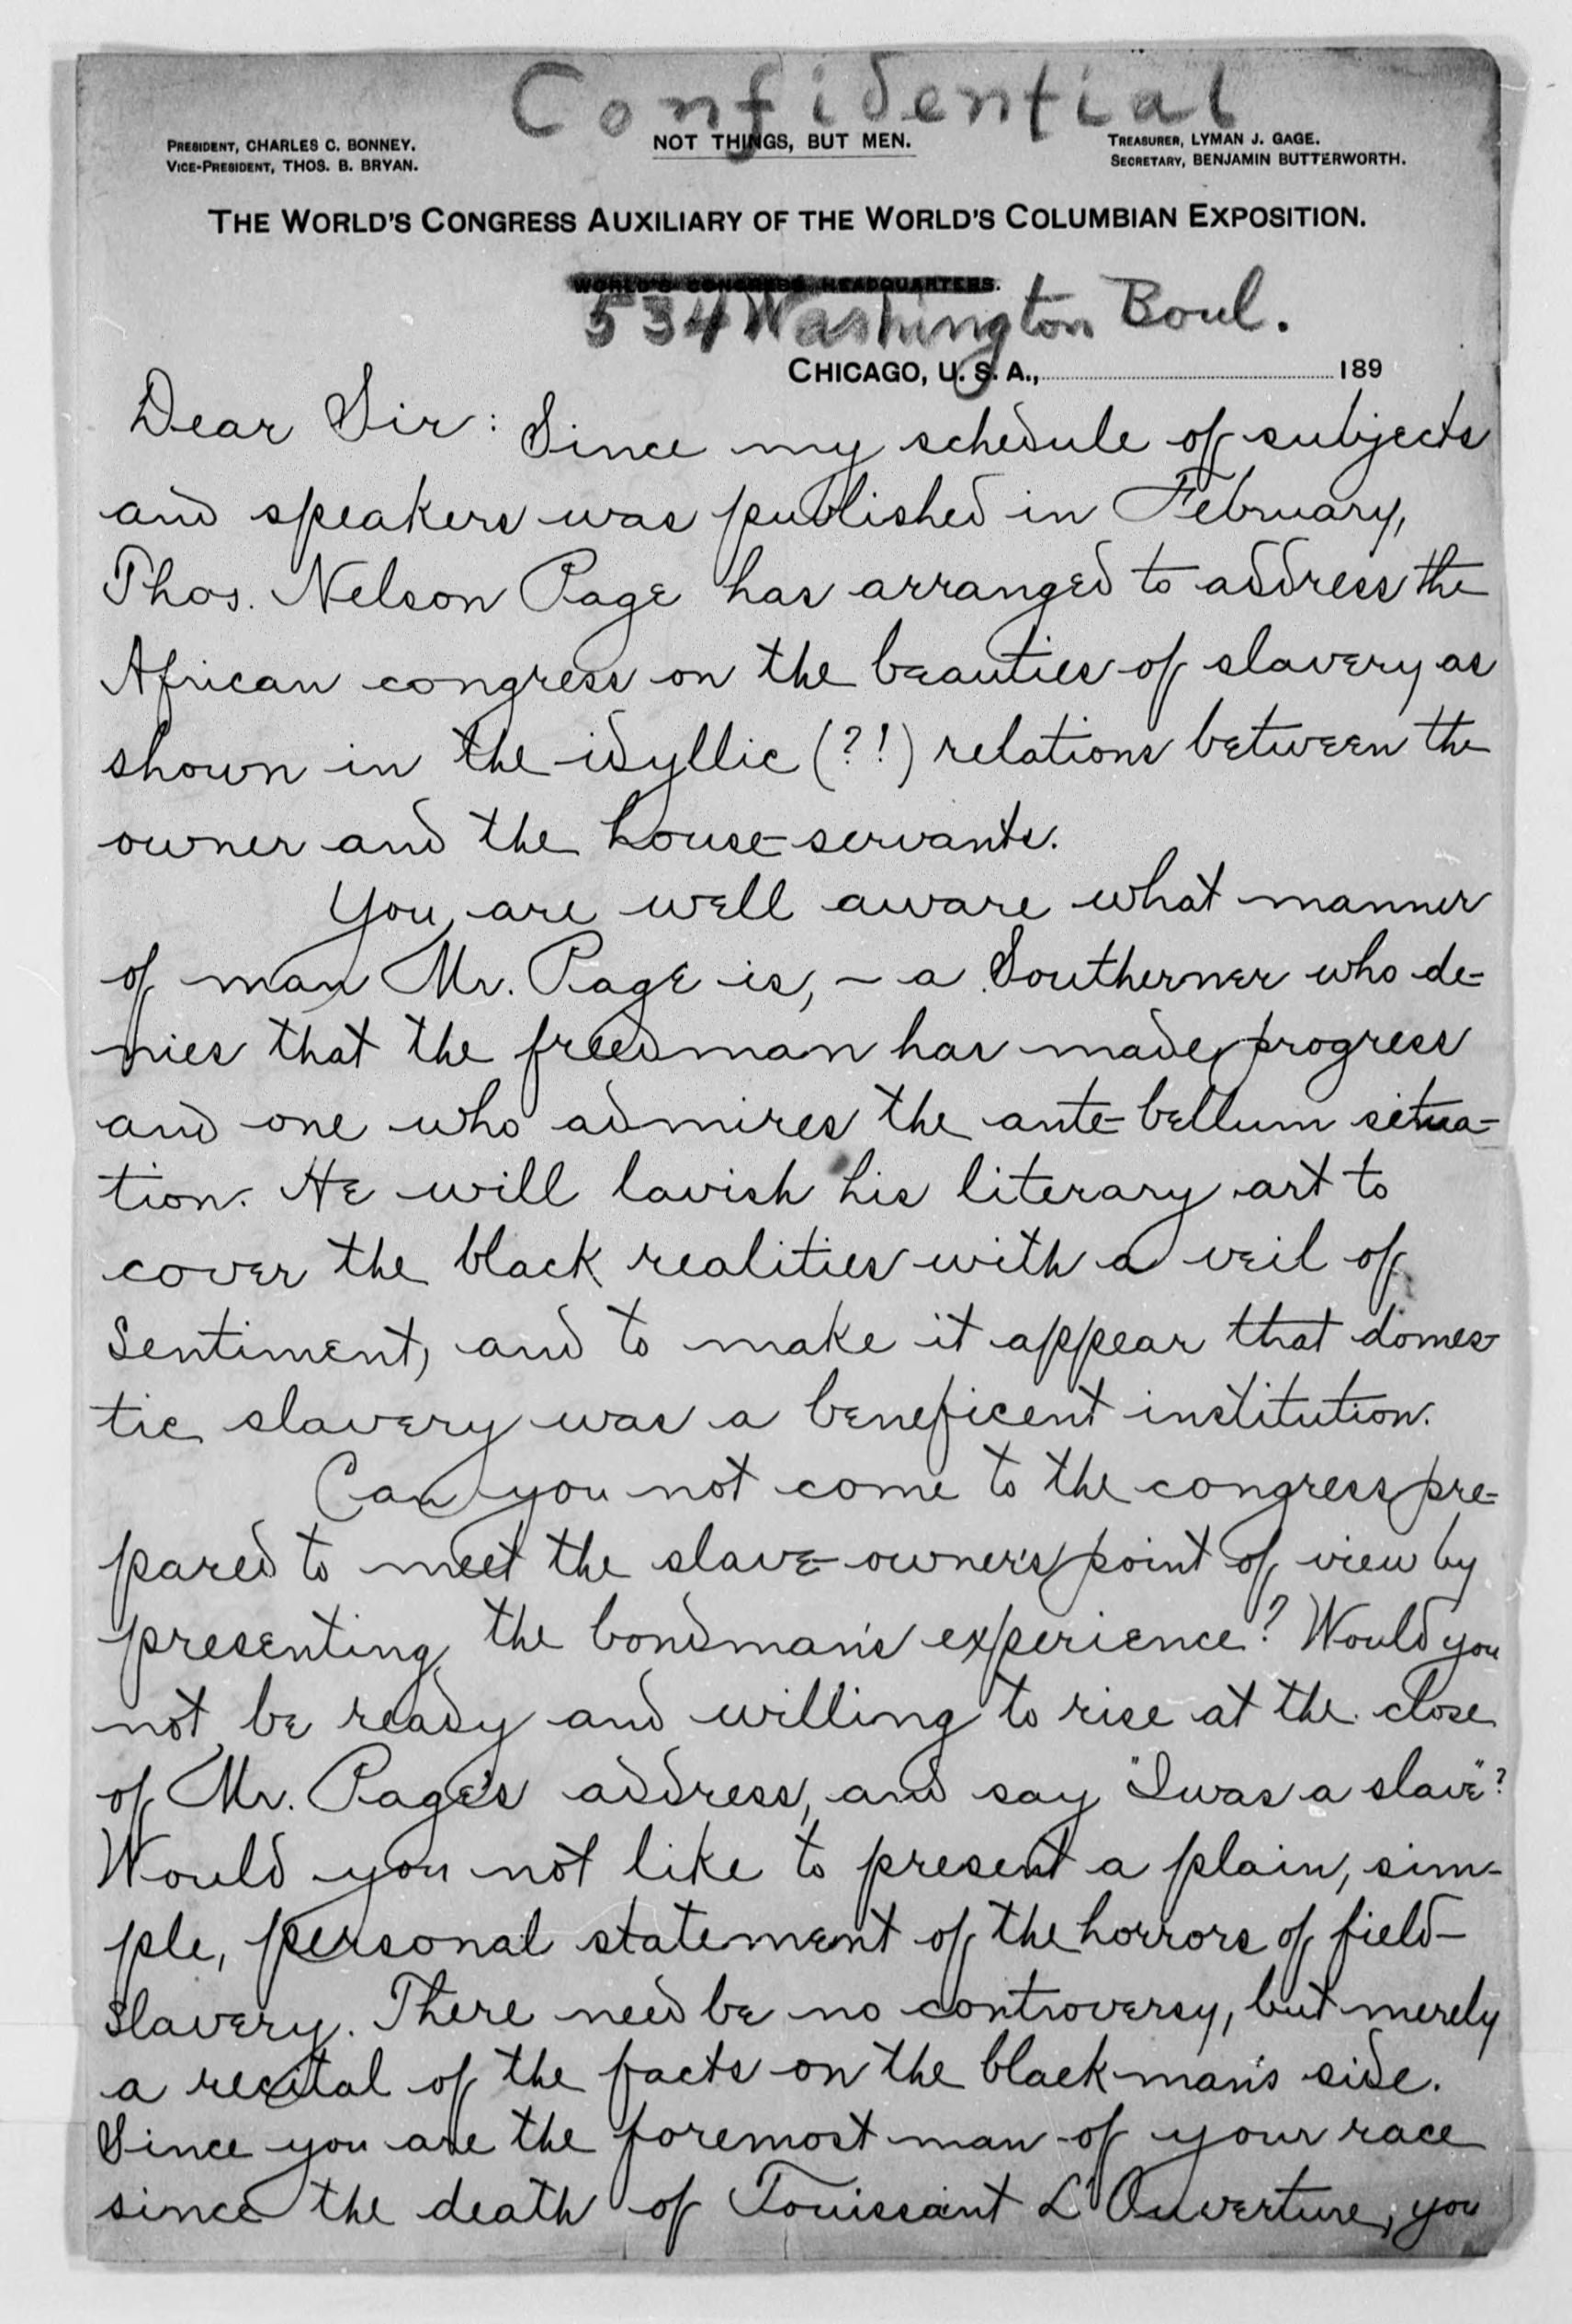 Confidential
PRESIDENT, CHARLES C. BONNEY.
VICE-PRESIDENT, THOS. B. BRYAN.
NOT THINGS, BUT MEN.
TREASURER, LYMAN J. GAGE.
SECRETARY, BENJAMIN BUTTERWORTH.
THE WORLD'S CONGRESS AUXILIARY OF THE WORLD'S COLUMBIAN EXPOSITION.
WORLD'S CONGRESS HEADQUARTERS.
534 Washington Boul.
CHICAGO, U. S. A., 189
Dear Sir: Since my schedule of subjects
and speakers was published in February,
Thos. Nelson Page has arranged to address the
African congress on the beauties of slavery as
shown in the idyllic (?!) relations between the
owner and the house-servants.
You are well aware what manner
of man Mr. Page is, - a Southerner who de-
nies that the freedman has made progress
and one who admires the ante-bellum situa-
tion. He will lavish his literary art to
cover the black realities with a veil of
sentiment, and to make it appear that domes-
tic slavery was a beneficent institution.
Can you not come to the congress pre-
pared to meet the slave-owner's point of view by
presenting the bondman's experience? Would you
not be ready and willing to rise at the close
of Mr. Page's address, and say "I was a slave"?
Would you not like to present a plain, sim-
ple, personal statement of the horrors of field-
slavery. There need be no controversy, but merely
a recital of the facts on the black-man's side.
Since you are the foremost man of your race
since the death of Touissant L'Ouverture, you